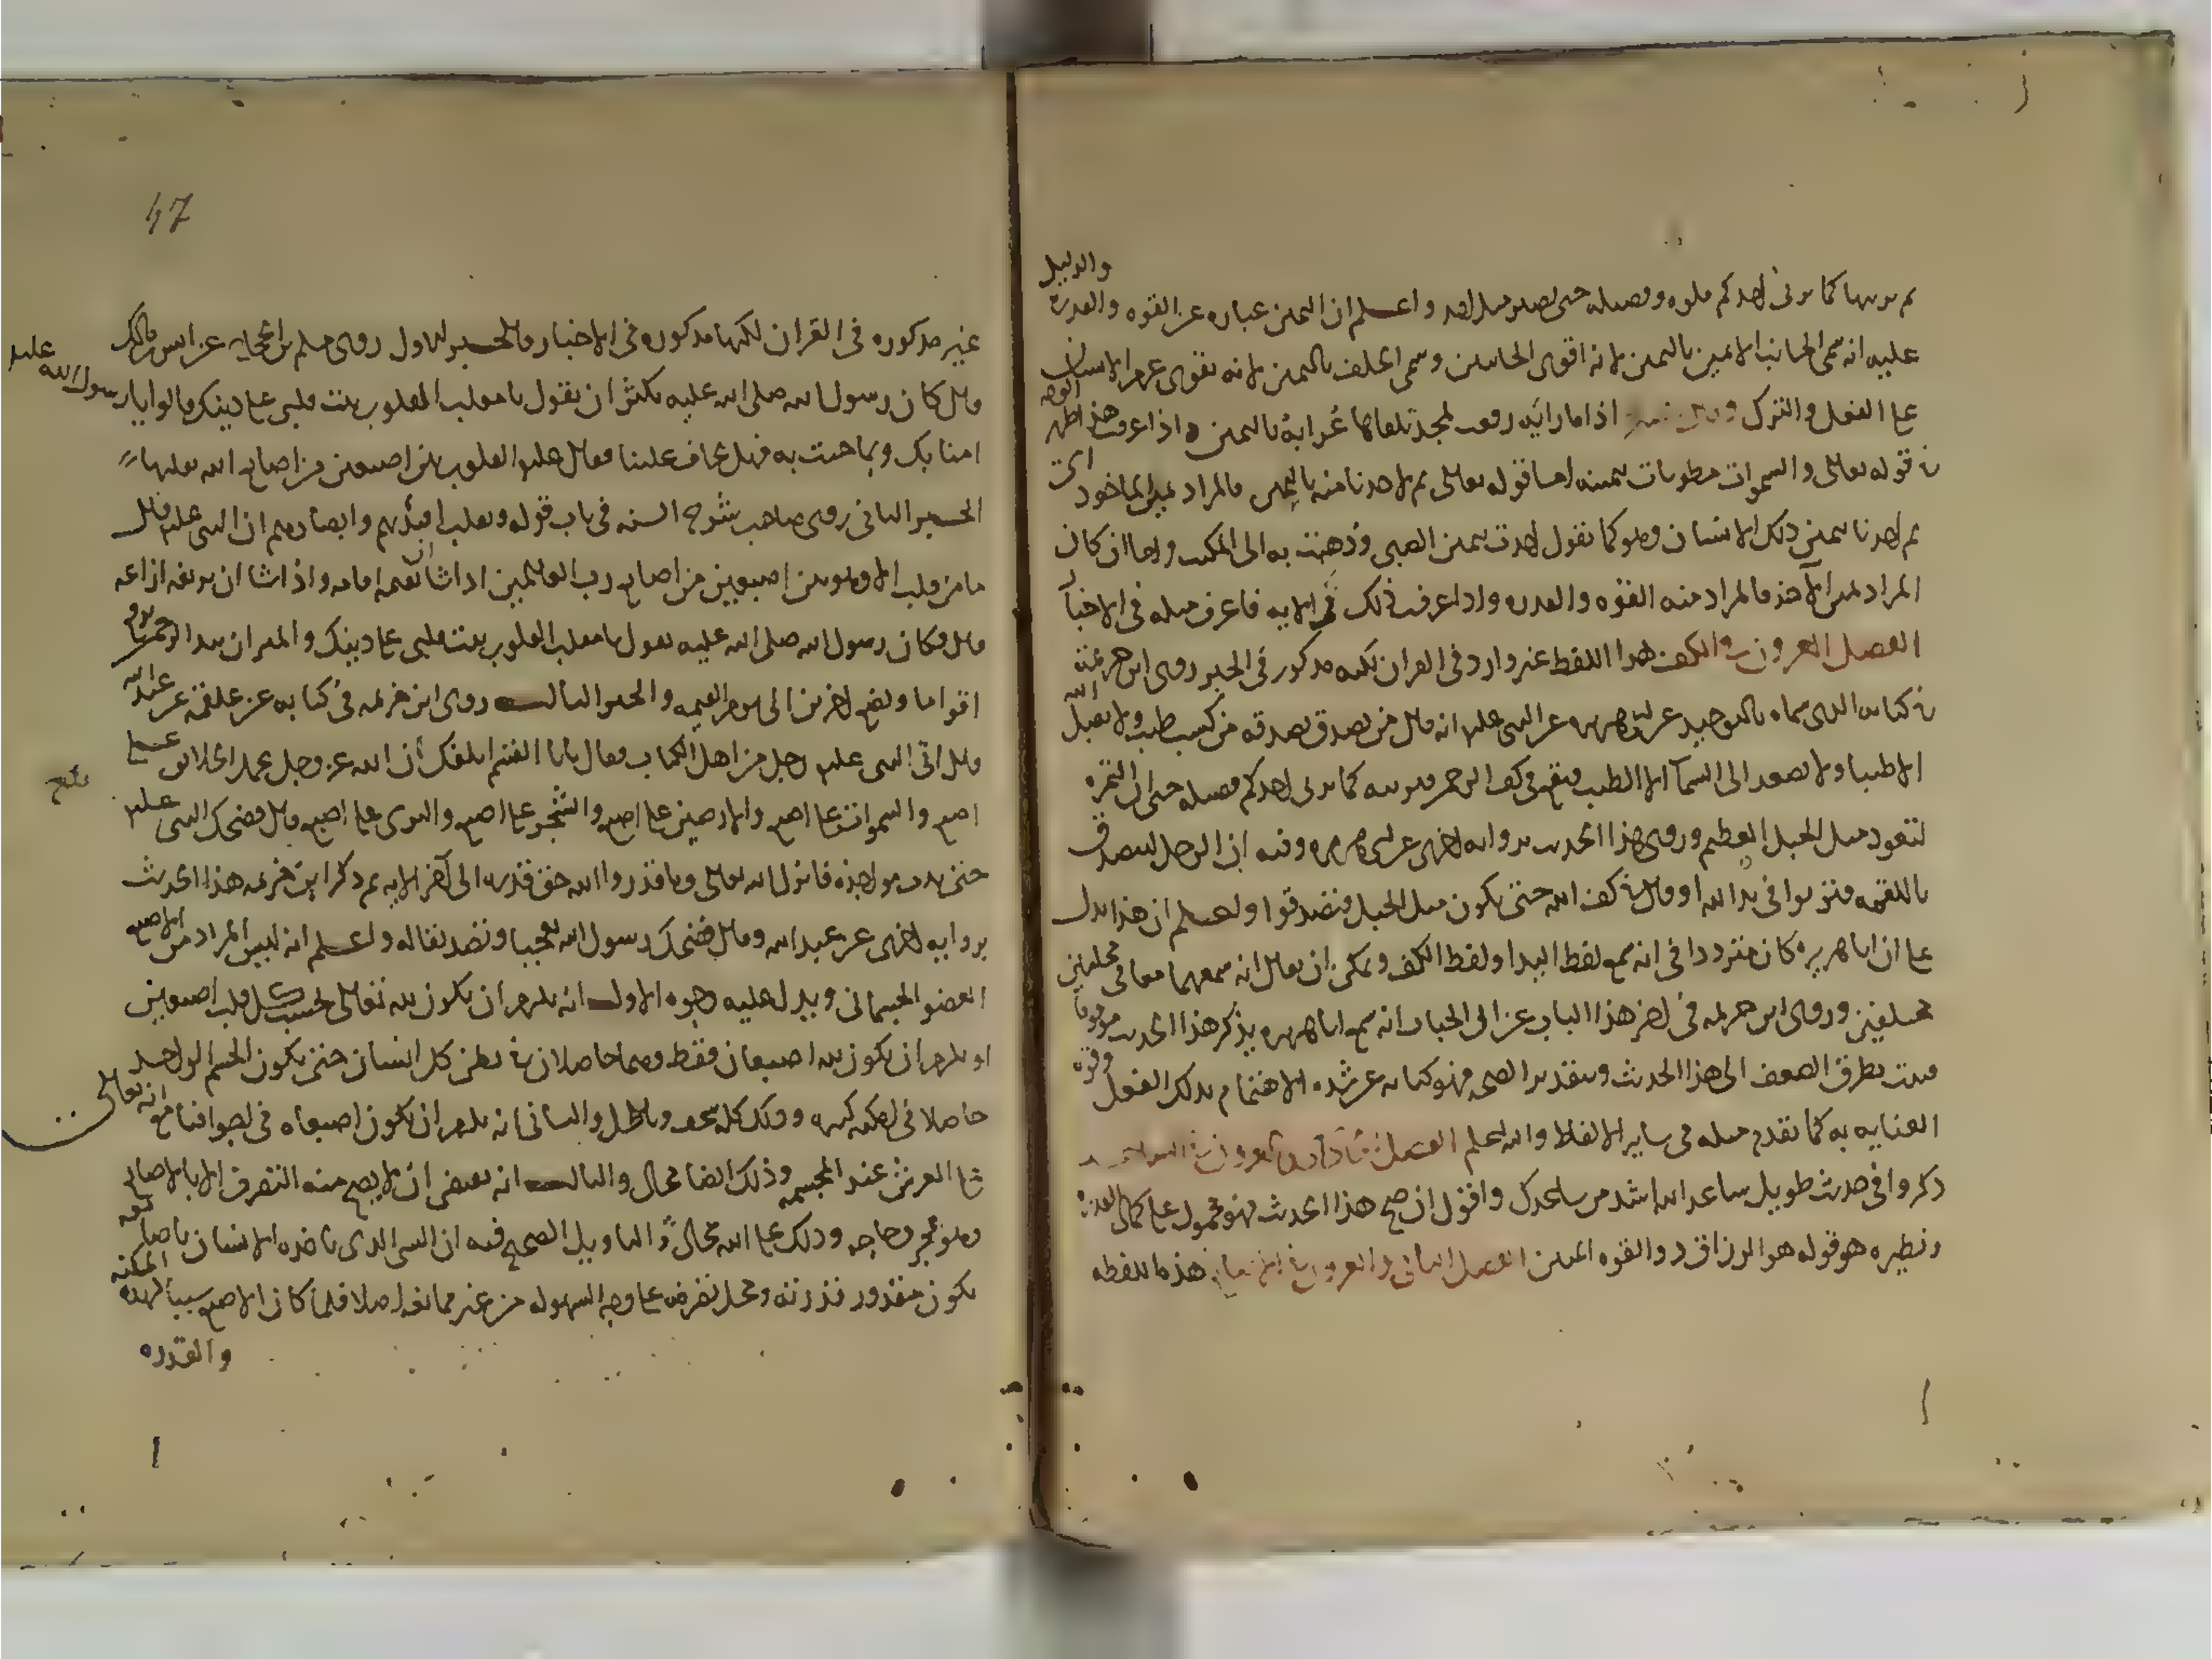 ثم يربيها كما يربي احدكم فلوه وفصيله حتى تصير مثل احد واعلم ان اليمين عباره عن القوه والقدره والدليل
عليه انه سمى الجانب الايمن باليمين لانه اقوى الجانبين وسمى الحلف باليمين لانه يقوي عزم الانسان
على الفعل والترك اذا ما رايه رفعت لمجد تلقاها عرابة باليمين واذا عرفت هذا ظهر الوجه
في قوله تعالى والسموات مطويات بيمينه اما قوله تعالى ثم لاخذنا منه باليمين فالمراد يمين الماخود اى
ثم اخذنا بيمين ذلك الانسان وهو كما تقول اخدت بيمين الصبي وذهبت به الى المكتب واما ان كان
المراد يمين الآخذ فالمراد منه القوه والقدره واذا عرفت ذلك في الايه فاعرف مثله في الاخبار
الفصل العشرون في الكف هذا اللفظ غير وارد في القران لكنه مذكور في الخبر روى ابن خزيمة
في كتابه الذى سماه بالتوحيد عن ابي هريره عن النبي عليه انه قال من تصدق بصدقه من كسب طيب ولا يقبل الله
الا طيبا ولا يصعد الى السمآ الا الطيب فيقع في كف الرحمن فيربيه كما يربي احدكم فصيله حتى ان التمرة
لتعود مثل الجبل العظيم وروى هذا الحديث بروايه اخرى عن ابي هريره وفيه ان الرجل ليتصدق
باللقمه فتربوا في يد الله او قال في كف الله حتى يكون مثل الجبل فتصدقوا واعلم ان هذا يدل
على ان ابا هريره كان مترددا في انه سمع لفظ اليد او لفظ الكف ويمكن ان يقال انه سمعهما معا في مجلسين
مختلفين وروى ابن خزيمه في اخر هذا الباب عن ابي الحباب انه سمع ابا هريره يذكر هذا الحديث موقوفا
فيتطرق الضعف الى هذا الحديث وبتقدير الصحه فهو كنايه عن شده الاهتمام بذلك الفعل وقوة
العنايه به كما تقدم مثله في ساير الالفاظ والله اعلم الفصل
ذكروا في حدث طويل ساعد الله اشد من ساعدك واقول ان صح هذا الحدث فهو محمول على كمال القدره
ونظيره هو قوله هو الرزاق ذو القوه المتين الفصل الثاني والعشرون في الاصابع هذه اللفظه
47
غير مذكوره في القران لكنها مذكوره في الاخبار فالخبر الاول روى مسلم بن الحجاج عن انس بن مالك
قال كان رسول الله صلى الله عليه يكثر ان يقول يا مقلب القلوب ثبت قلبي على دينك قالوا يا رسول الله عليه
امنا بك وبما جئت به فهل تخاف علينا فقال عليه القلوب بين اصبعين من اصابع الله يقلبها
الخبر الثاني روى صاحب شرح السنه في باب قوله ونقلب افئدتهم وابصارهم ان النبي عليه قال
ما من قلب الا وهو بين اصبعين من اصابع رب العالمين اذا شا ان يقيمه اقامه واذا شا ان يزيغه ازاغه
قال وكان رسول الله صلى الله عليه يقول يا مقلب القلوب ثبت قلبي على دينك والميزان بيد الرحمن يرفع
اقواما ويضع اخرين الى يوم القيمه والخبر الثالث روى ابن خزيمه في كتابه عن علقمة عن عبد الله
قال اتى النبي عليه رجل من اهل الكتاب فقال يابا القسم ابلغك ان الله عز وجل يحمل الخلائق على
اصبع والسموات على اصبع والارضين على اصبع والشجر على اصبع والثرى على اصبع قال فضحك النبي عليه
حتى بدت نواجذه فانزل الله تعالى وما قدروا الله حق قدره الى آخر الايه ثم ذكر ابن خزيمه هذا الحديث
بروايه اخرى عن عبد الله وقال فضحك رسول الله تعجبا وتصديقا له واعلم انه ليس المراد من الاصبع
العضو الجسماني ويدل عليه وجوه الاول انه يلزم ان يكون لله تعالى بحسب كل قلب اصبعين
او يلزم ان يكون لله اصبعان فقط وهما حاصلان في بطن كل انسان حتى يكون الجسم الواحد
حاصلا في امكنه كثيره وذلك كله سخف وباطل والثاني انه يلزم ان يكون اصبعاه في اجوافنا مع انه تعالى
على العرش عند المجسمه وذلك ايضا محال والثالث انه يقتضي ان لا يصح منه التصرف الا بالاصابع
وهو عجز وحاجه وذلك على الله محال والتاويل الصحيح فيه ان الشي الذى ياخذه الانسان باصابعه
يكون مقدور قدرته ومحل تصرفه على وجه السهوله من غير ممانعه اصلا فلما كان الاصبع سببا لهذه المكنه
والقدره